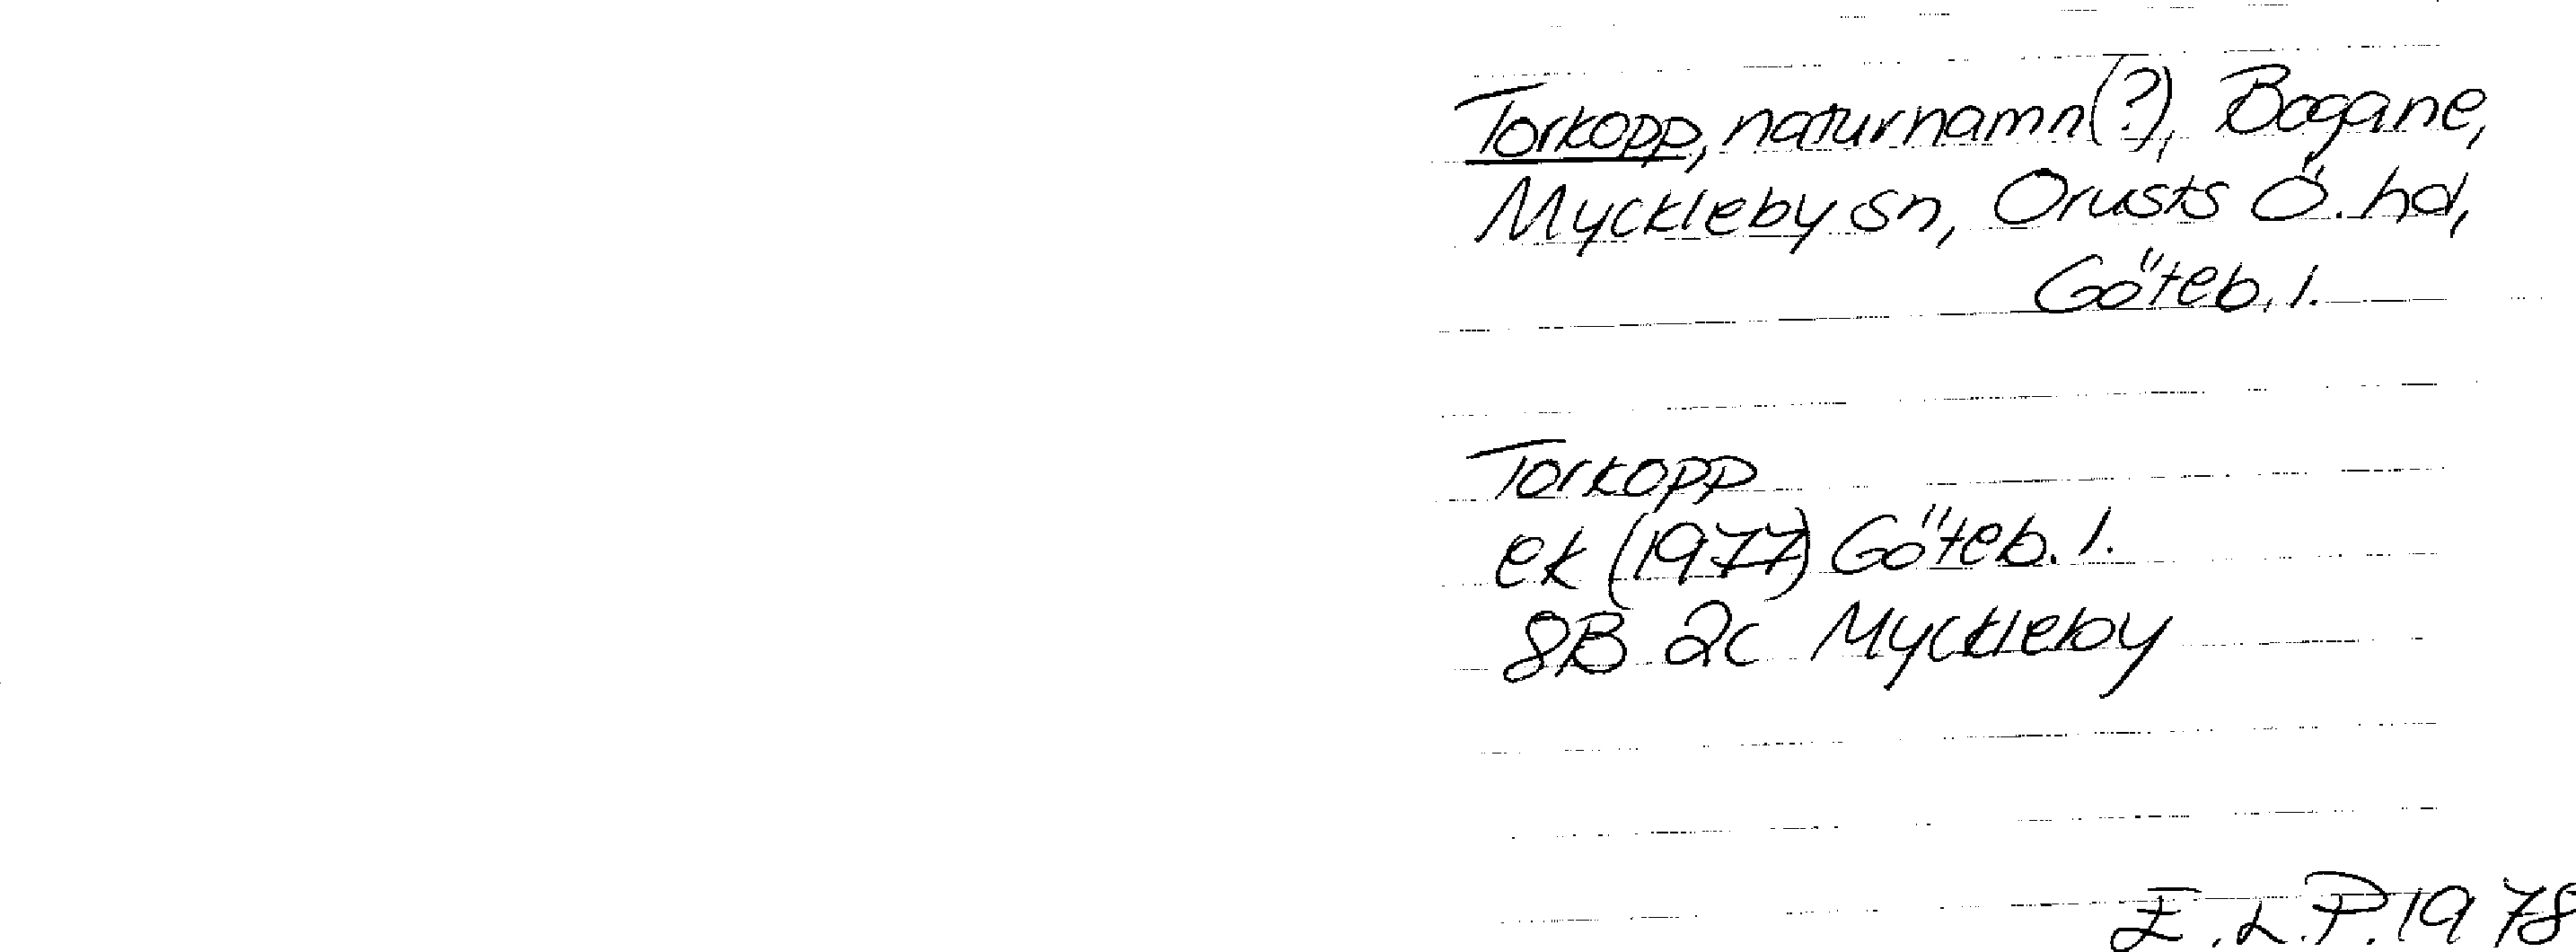 Torkopp, naturnamn(?), Bogane,
Myckleby sn, Orusts Ö. hd,
Göteb. l.
Torkopp
ek (1977) Göteb. l.
8B 2c Myckleby
E.L.P. 1978